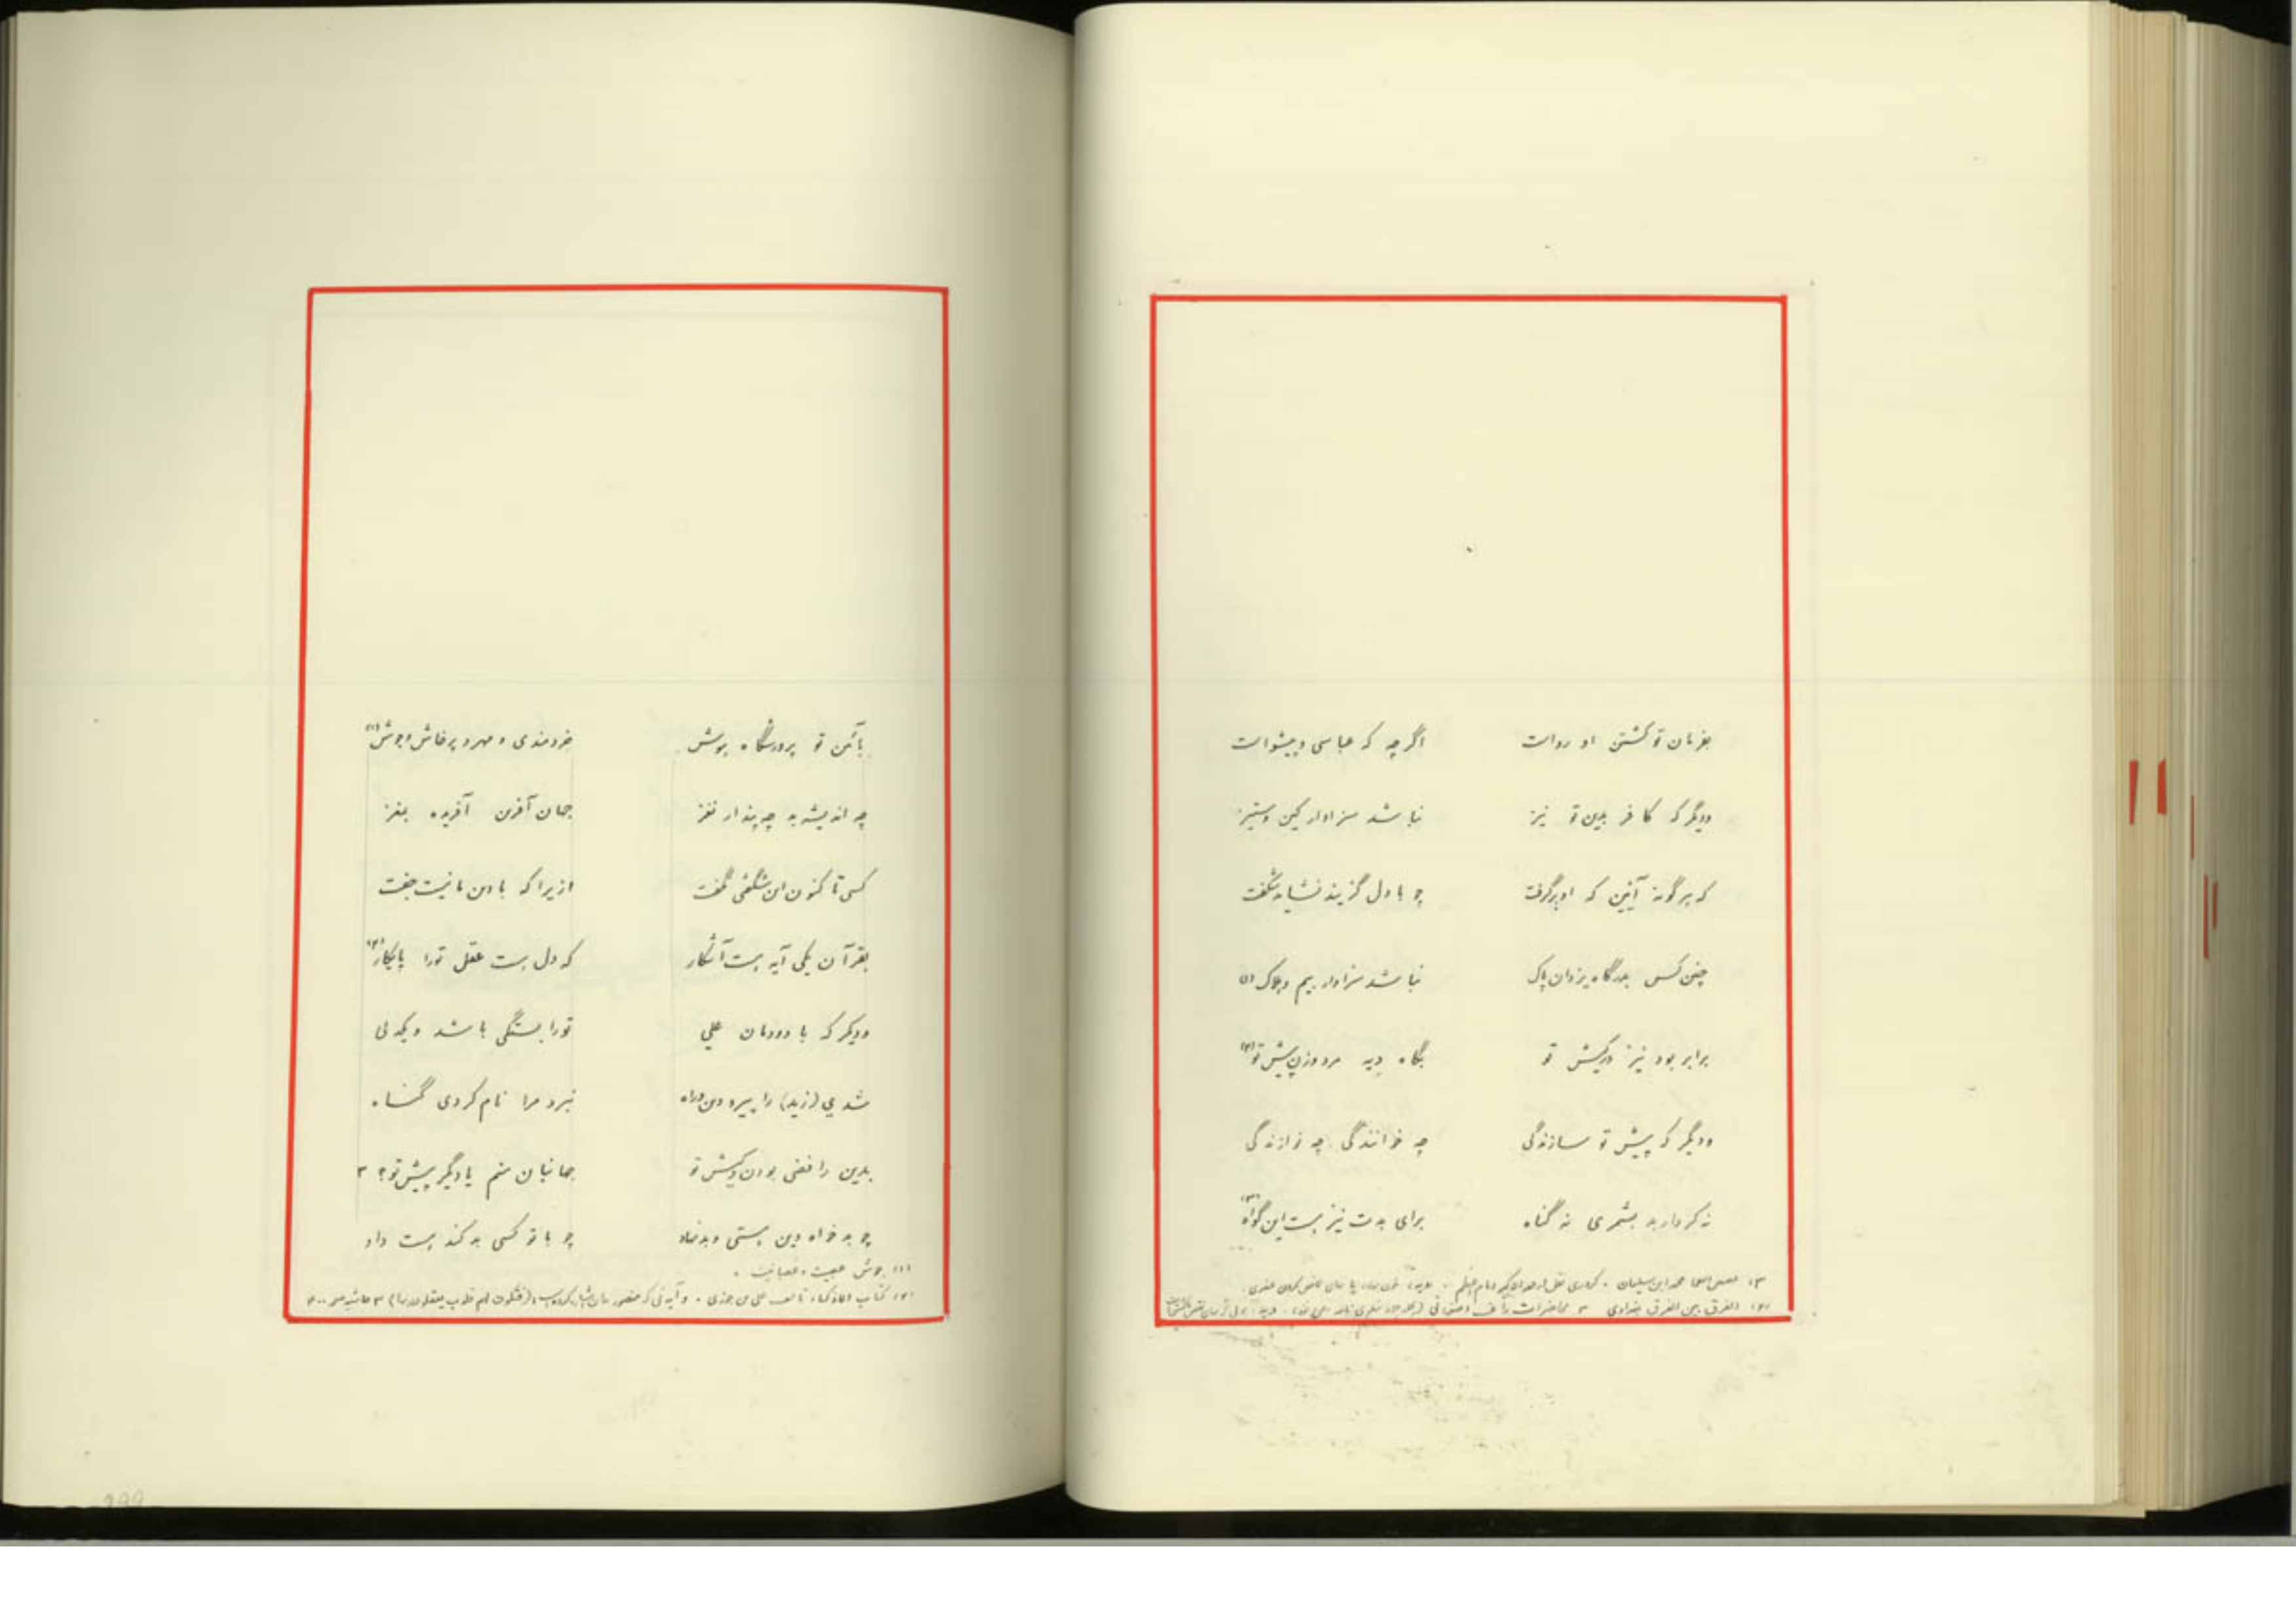 بفرمان تو کشتن او رواست اگر چه که عباسی و پیشواست
ودیگر که کافر بدین تو نیز نباشد سزاوار کین وستیز
که هر گونه آئین که او برگرفت چو با دل گزیند نشاید شگفت
چنین کس بدرگاه یزدان پاک نباشد سزاوار بیم و باک (۱)
برابر بود نیز در کیش تو بگاه دیه مرد وزن پیش تو (۲)
ودیگر که پیش تو سازندگی چه خوانندگی چه نوازندگی
نه کردار بد بشمری نه گناه برای بدت نیز هست این گواه (۳)
(۱) محمد ابن سلیمان
(۲) الفرق بین الفرق بغدادی ۳ محاضرات راغب اصفهانی
بآئین تو پرورشگاه هوش خردمندی و مهر و پرخاش و جوش (۱)
چه اندیشه بد چه پندار نغز جهان آفرین آفریده بمغز
کسی تا کنون این شگفتی نگفت ازیرا که با دین ما نیست جفت
بقرآن یکی آیه هست آشکار که دل هست عقل تورا پایکار (۲)
ودیگر که با دودمان علی تورا بستگی باشد و یکدلی
شدی (زید) را پیرو دین و راه نبرد مرا نام کردی گناه
بدین رافضی بودن و کیش تو جهانبان منم یا دگر پیش تو؟ ۳
چو بد خواه دین هستی و بد نهاد چو با تو کسی بد کند هست داد
(۱) جوش عصبیت و عصبانیت .
(۲) کتاب الاذکیاء تالیف علی بن جوزی . و آیه ئی که منصور بدان اشاره کرده (فتکون لهم قلوب یعقلون بها) ۳ حاشیه ص